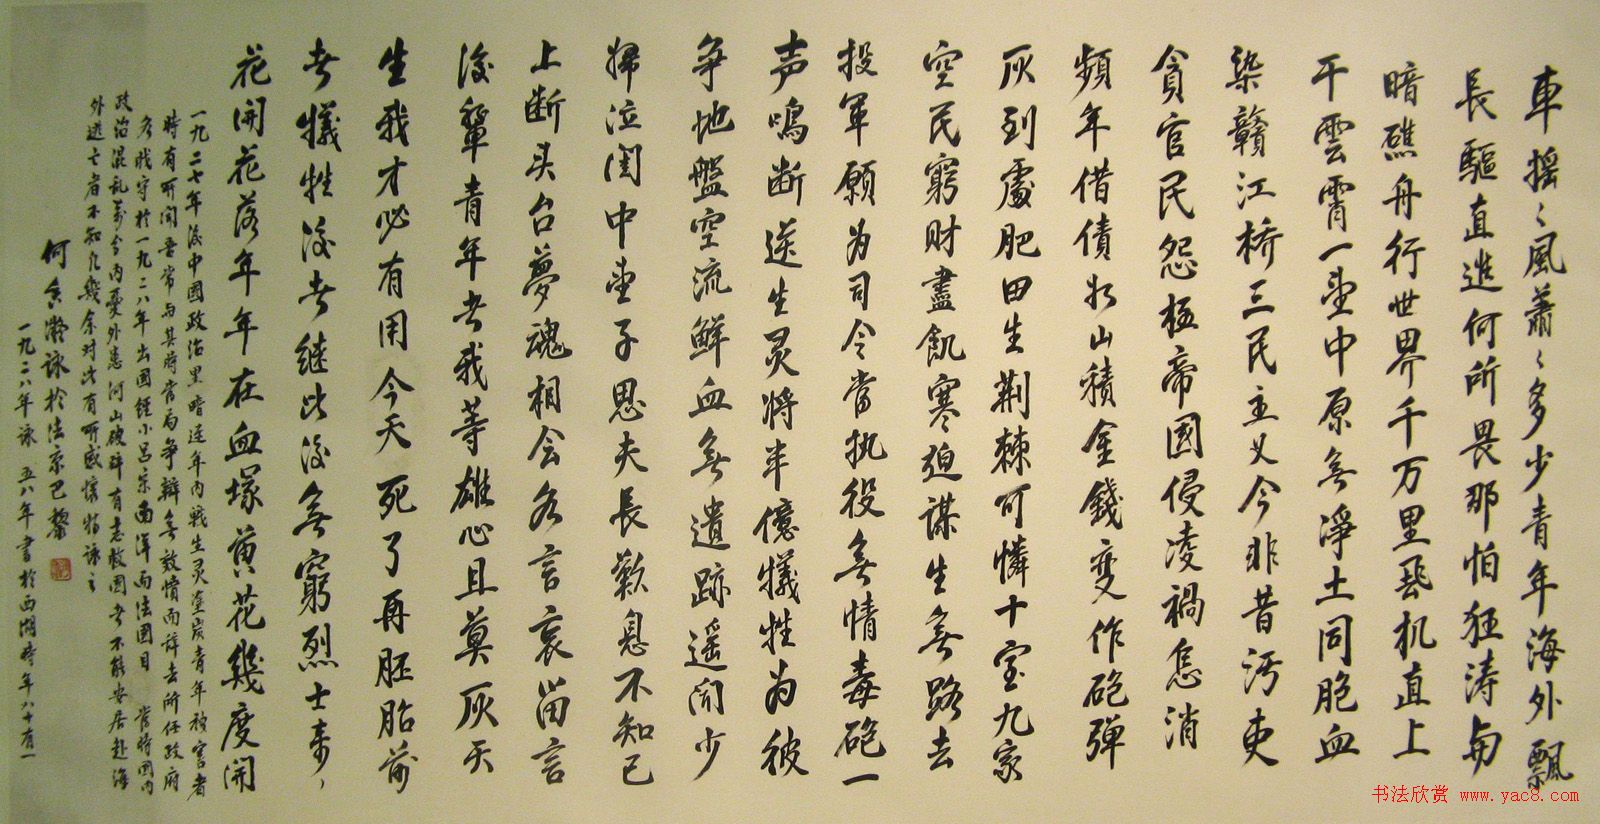 車摇〻風蕭〻多少青年海外飄
長驅直進何所畏那怕狂涛与
暗礁舟行世界千万里飛机直上
干雲霄一望中原無淨土同胞血
染贛江桥三民主义今非昔污吏
貪官民怨極帝國侵凌禍怎消
頻年借債如山積金錢变作砲弹
灰到處肥田生荆棘可憐十室九家
空民窮財盡飢寒迫謀生無路去
投軍願为司令當执役無情毒砲一
声鳴断送生灵将半億犧牲为彼
争地盤空流鮮血無遺跡遥闻少
婦泣闺中望子思夫長歎息不知已
上断头台夢魂相会各言哀留言
後輩青年者我等雄心且莫灰天
生我才必有用今天死了再胚胎前
者犧牲後者继此後無窮烈士来〻
花開花落年年在血塚黄花幾度開
一九二七年後中國政治黑暗連年内戰生灵塗炭青年被害者
時有所聞吾常与其時當局争辯無效憤而辞去所任政府
各职守於一九二八年出國經小吕宋南洋而法國目 當時国内
政治混乱萬分内憂外患河山破碎有志救國者不能安居赴海
外逃亡者不知凡幾余对此有所感懷特詠之
何香凝詠於法京巴黎
一九二八年詠 五八年書於西湖時年八十有一
书法欣赏 www.yac8.com